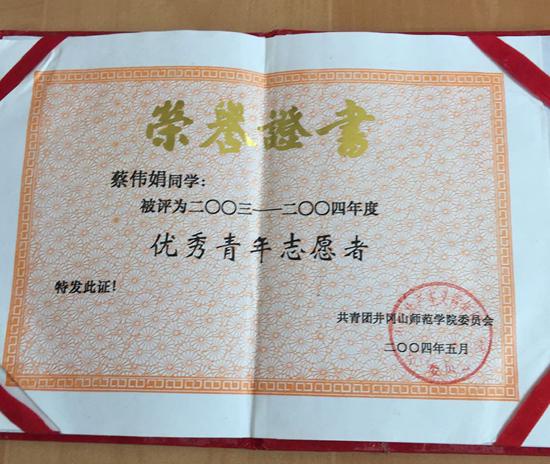 榮譽證書
蔡伟娟同学：
被评为二〇〇三——二〇〇四年度
优秀青年志愿者
特发此证！
共青团井冈山师范学院委员会
二〇〇四年五月